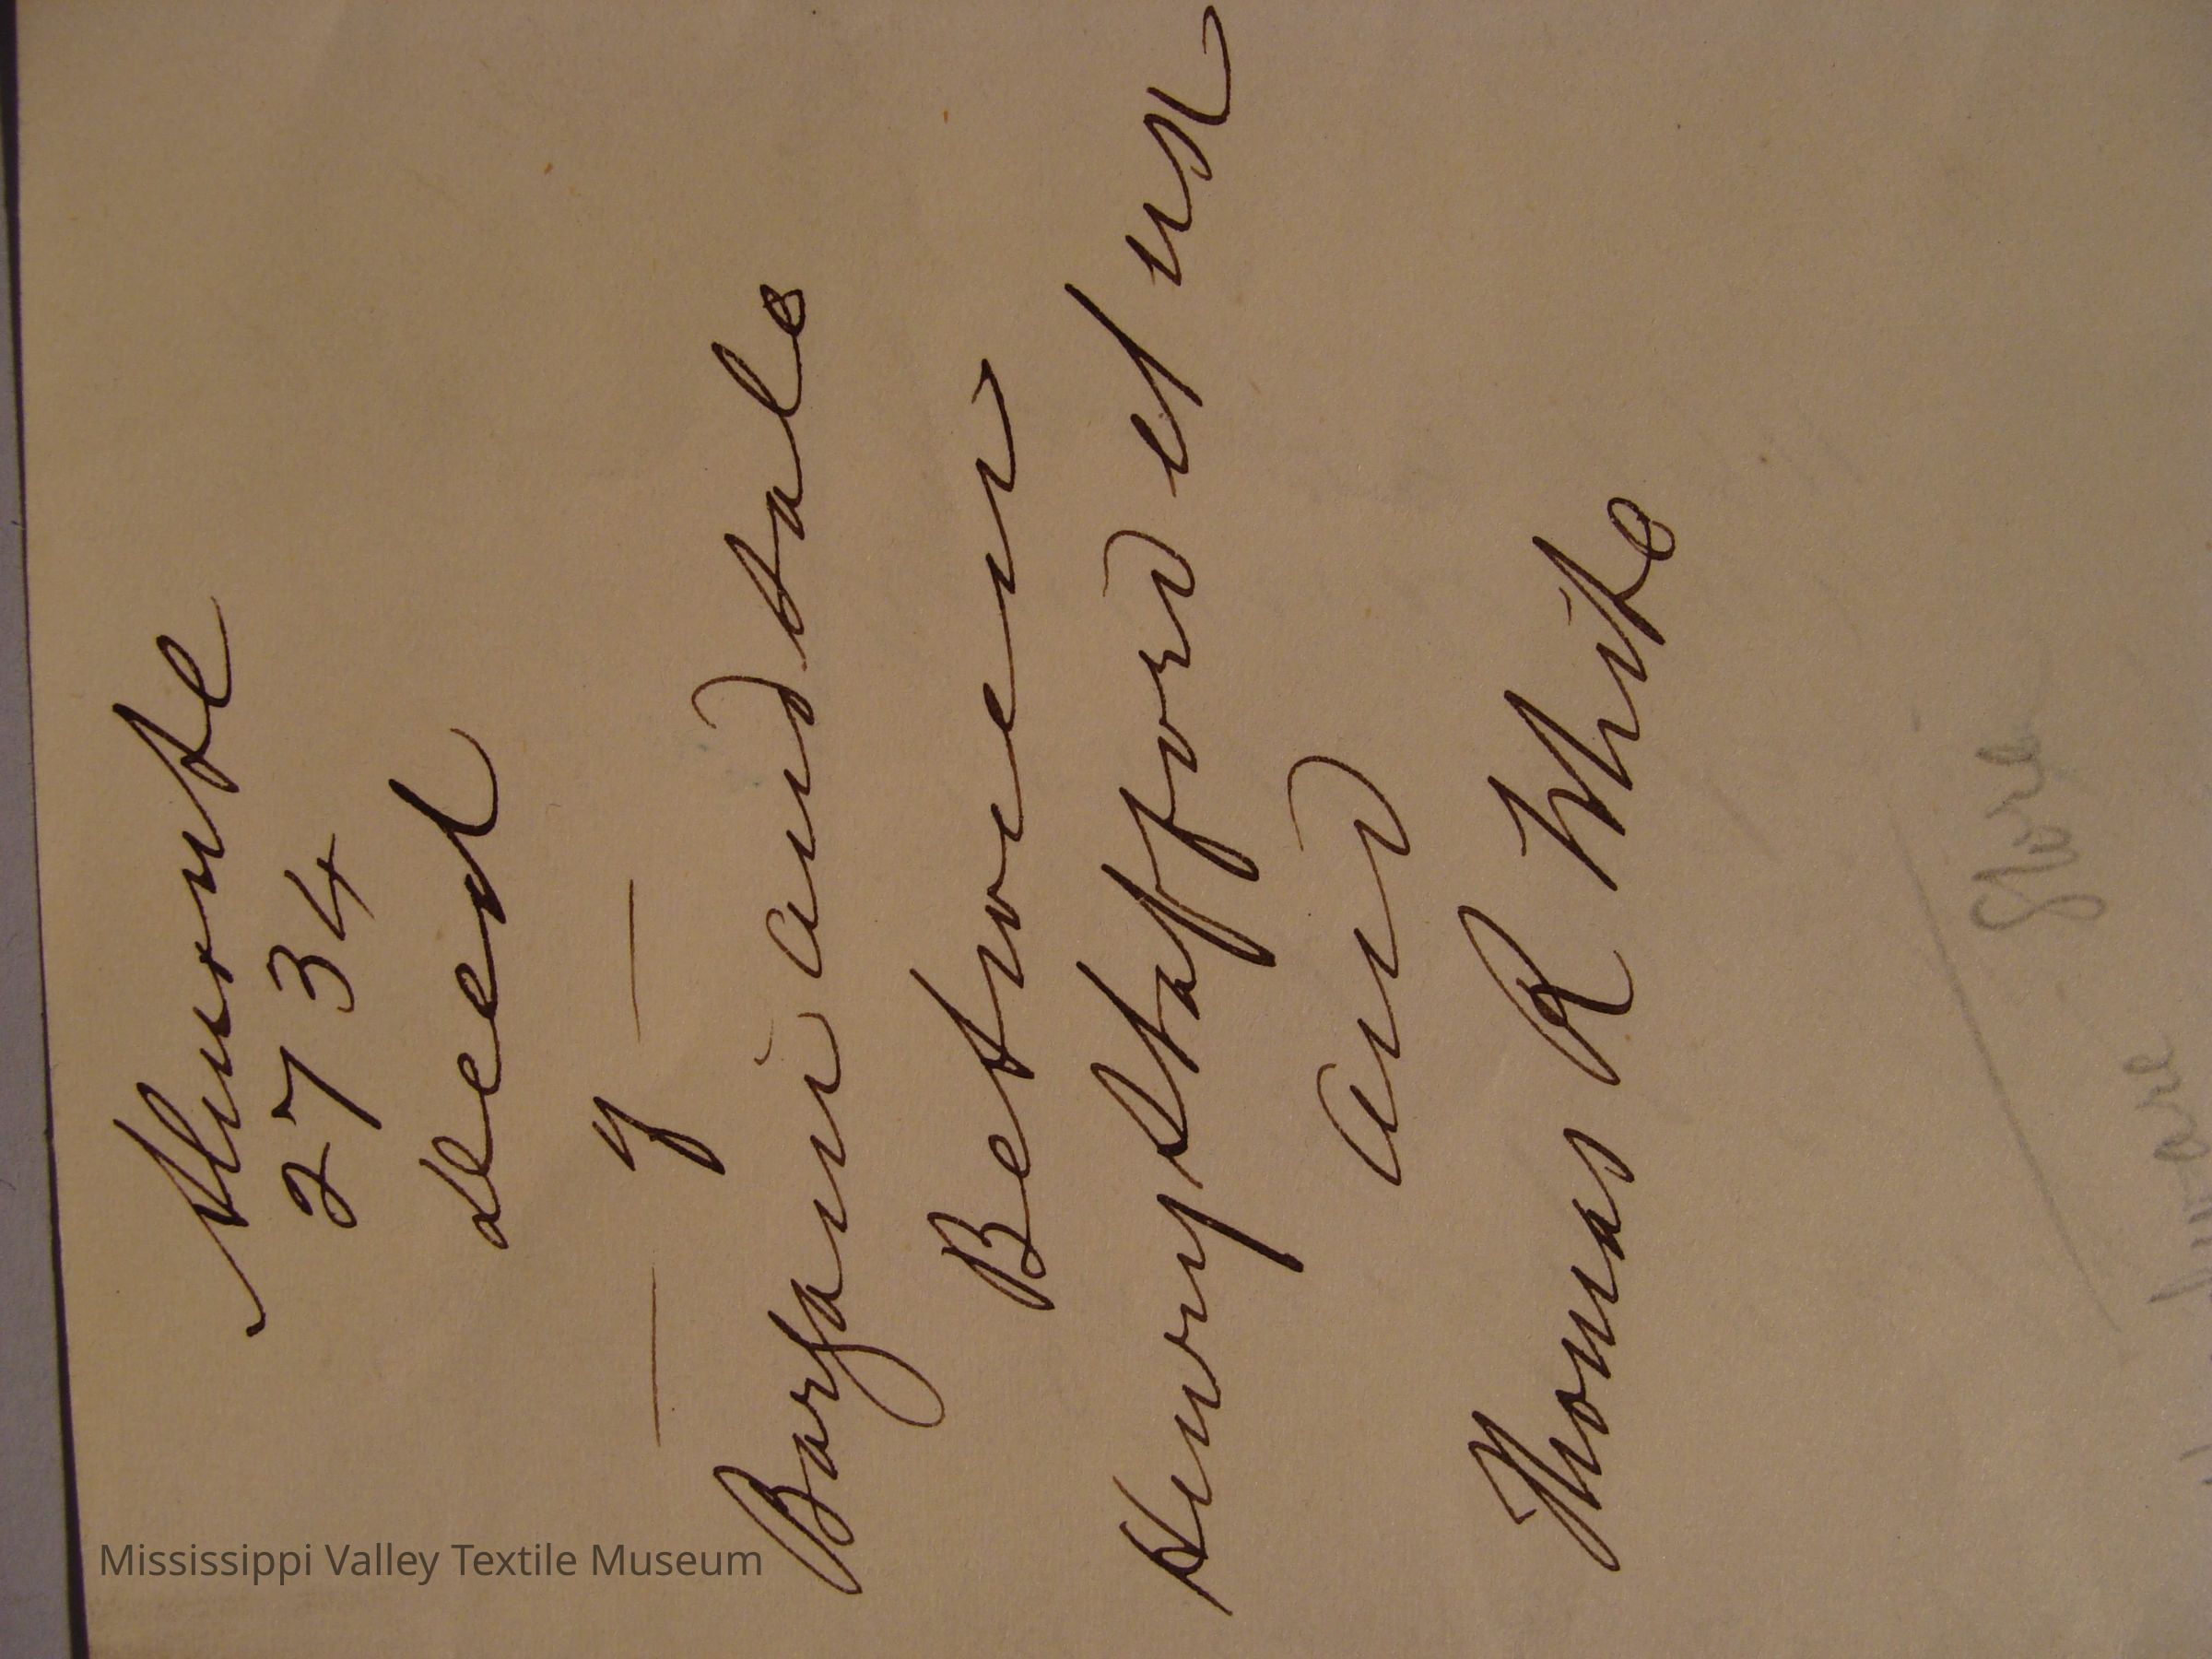 Almonte
2734
deed
of
Bargain and Sale
Between
Henry Stafford et ux
and
Thomas R White
Store
Mississippi Valley Textile Museum